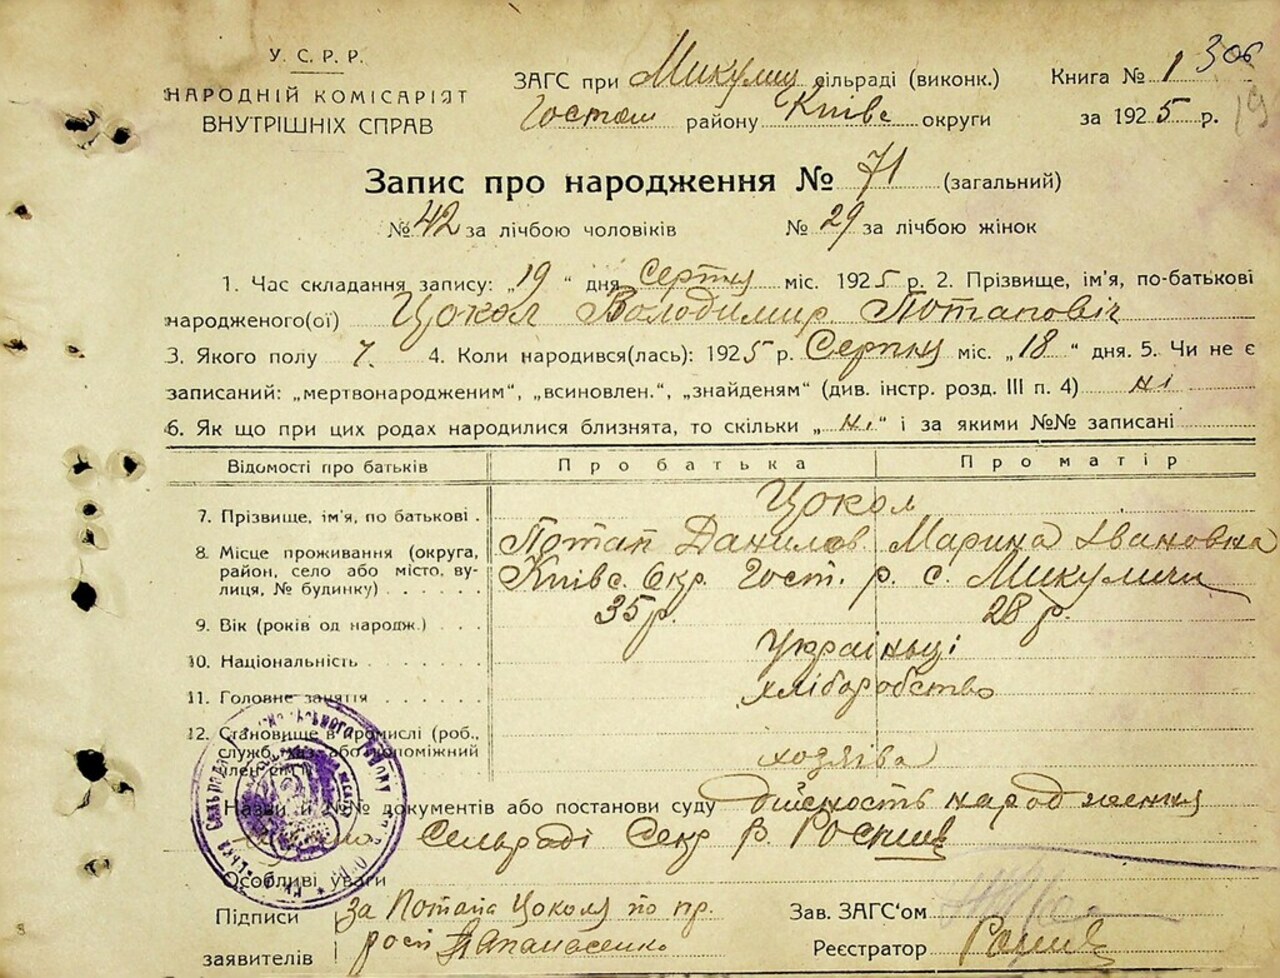 У. С. Р. Р.
НАРОДНІЙ КОМІСАРІЯТ
ВНУТРІШНІХ СПРАВ
ЗАГС при Микулиц сільраді (виконк.)
Гостом району Київс округи
Книга № 1 306
за 1925 р. 19
Запис про народження № 71 (загальний)
№ 42 за лічбою чоловіків № 29 за лічбою жінок
1. Час складання запису: „19 “ дня Серпня міс. 1925 р. 2. Прізвище, ім'я, по-батькові
народженого(ої) Цокол Володимир Потапович
3. Якого полу ч. 4. Коли народився(лась): 1925 р. Серпня міс. „18 “ дня. 5. Чи не є
записаний: „мертвонародженим“, „всиновлен.“, „знайденям“ (див. інстр. розд. III п. 4) ні
6. Як що при цих родах народилися близнята, то скільки „ні“ і за якими №№ записані
Відомості про батьків Про батька Про матір
7. Прізвище, ім'я, по батькові . Цокол
Потап Данилов Марина Івановна
8. Місце проживання (округа, район, село або місто, вулиця, № будинку) Київс. Окр. Гост. р. с. Микуличи
9. Вік (років од народж.) 35 р. 28 р.
10. Національність Українці
11. Головне заняття хліборобство
12. Становище в промислі (роб., служб., хаз. або допоміжний член сім'ї) хозяїва
Назви й №№ документів або постанови суду дійсность народження
Сельраді Секр
Особливі уваги
Підписи
заявителів
За Потапа Цоколя по пр.
росп Апанасенко
Зав. ЗАГС'ом
Реєстратор